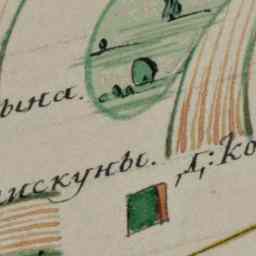 ына.
искуны. Д: Ко